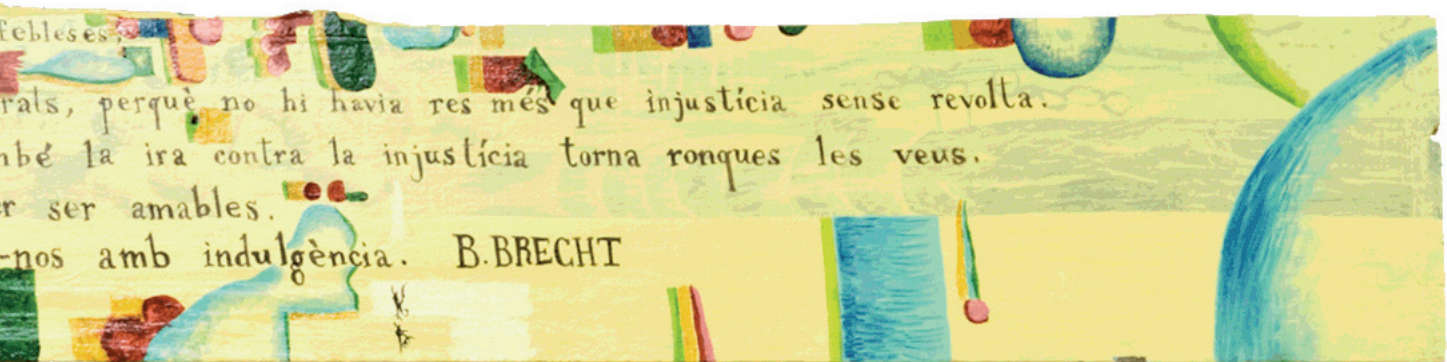 febleses,
rats, perquè no hi havia res més que injustícia sense revolta.
mbé la ira contra la injustícia torna ronques les veus.
r ser amables.
-nos amb indulgència. B.BRECHT